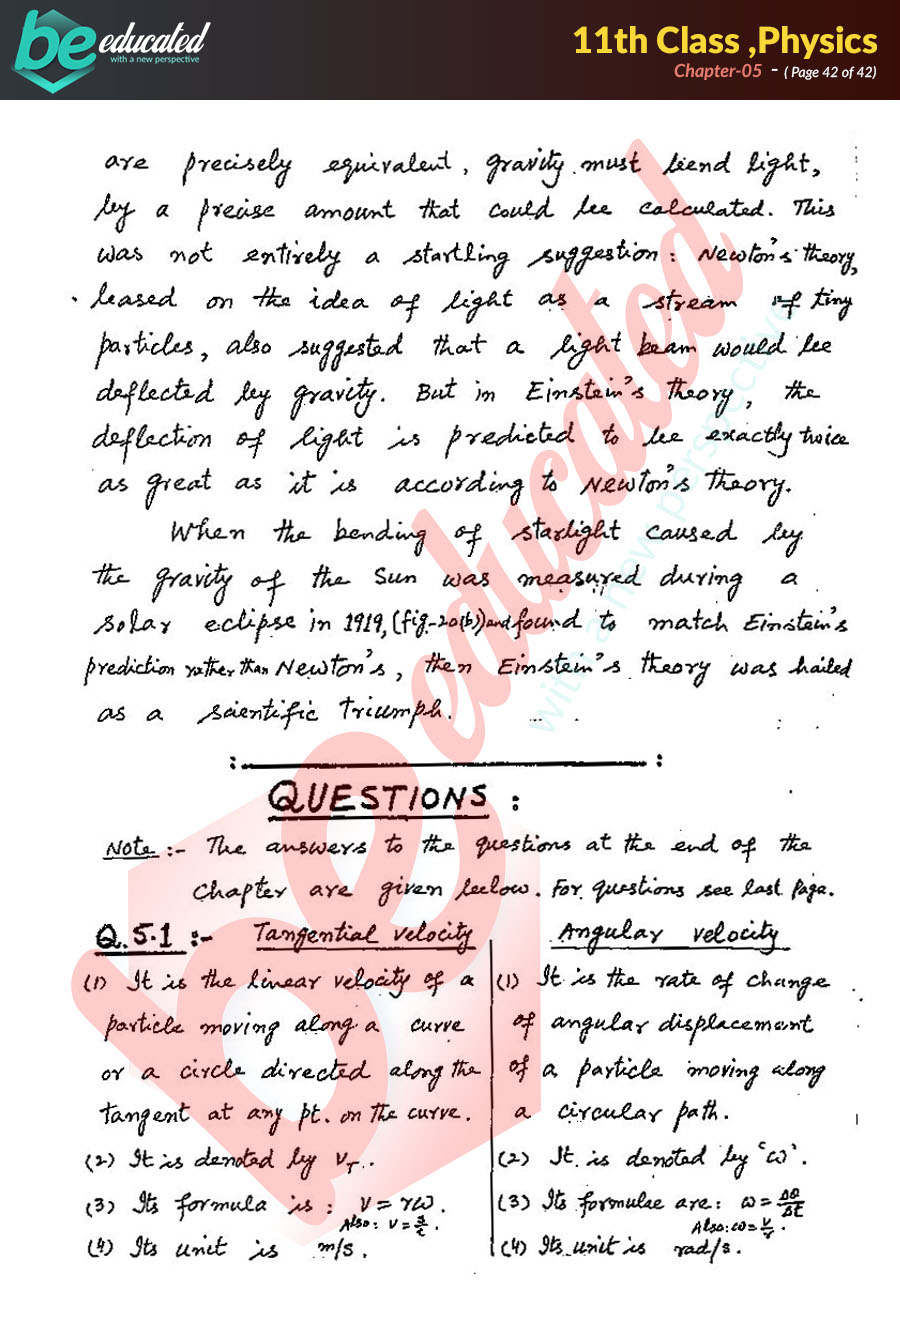 be educated
with a new perspective
11th Class ,Physics
Chapter-05 - ( Page 42 of 42)
are precisely equivalent, gravity must bend light,
by a precise amount that could be calculated. This
was not entirely a startling suggestion: Newton's theory,
based on the idea of light as a stream of tiny
particles, also suggested that a light beam would be
deflected by gravity. But in Einstein's theory, the
deflection of light is predicted to be exactly twice
as great as it is according to Newton's theory.
When the bending of starlight caused by
the gravity of the Sun was measured during a
solar eclipse in 1919, (fig-20(b)) and found to match Einstein's
prediction rather than Newton's, then Einstein's theory was hailed
as a scientific triumph.
QUESTIONS :
Note :- The answers to the questions at the end of the
chapter are given below. For questions see last page.
Q.5.1 :- Tangential velocity
(1) It is the linear velocity of a
particle moving along a curve
or a circle directed along the
tangent at any pt. on the curve.
(2) It is denoted by V_T.
(3) Its formula is : V = rω.
Also: V = s/t.
(4) Its unit is m/s.
Angular velocity
(1) It is the rate of change
of angular displacement
of a particle moving along
a circular path.
(2) It is denoted by 'ω'.
(3) Its formulae are: ω = Δθ/Δt
Also: ω = v/r.
(4) Its unit is rad/s.
be educated
with a new perspective